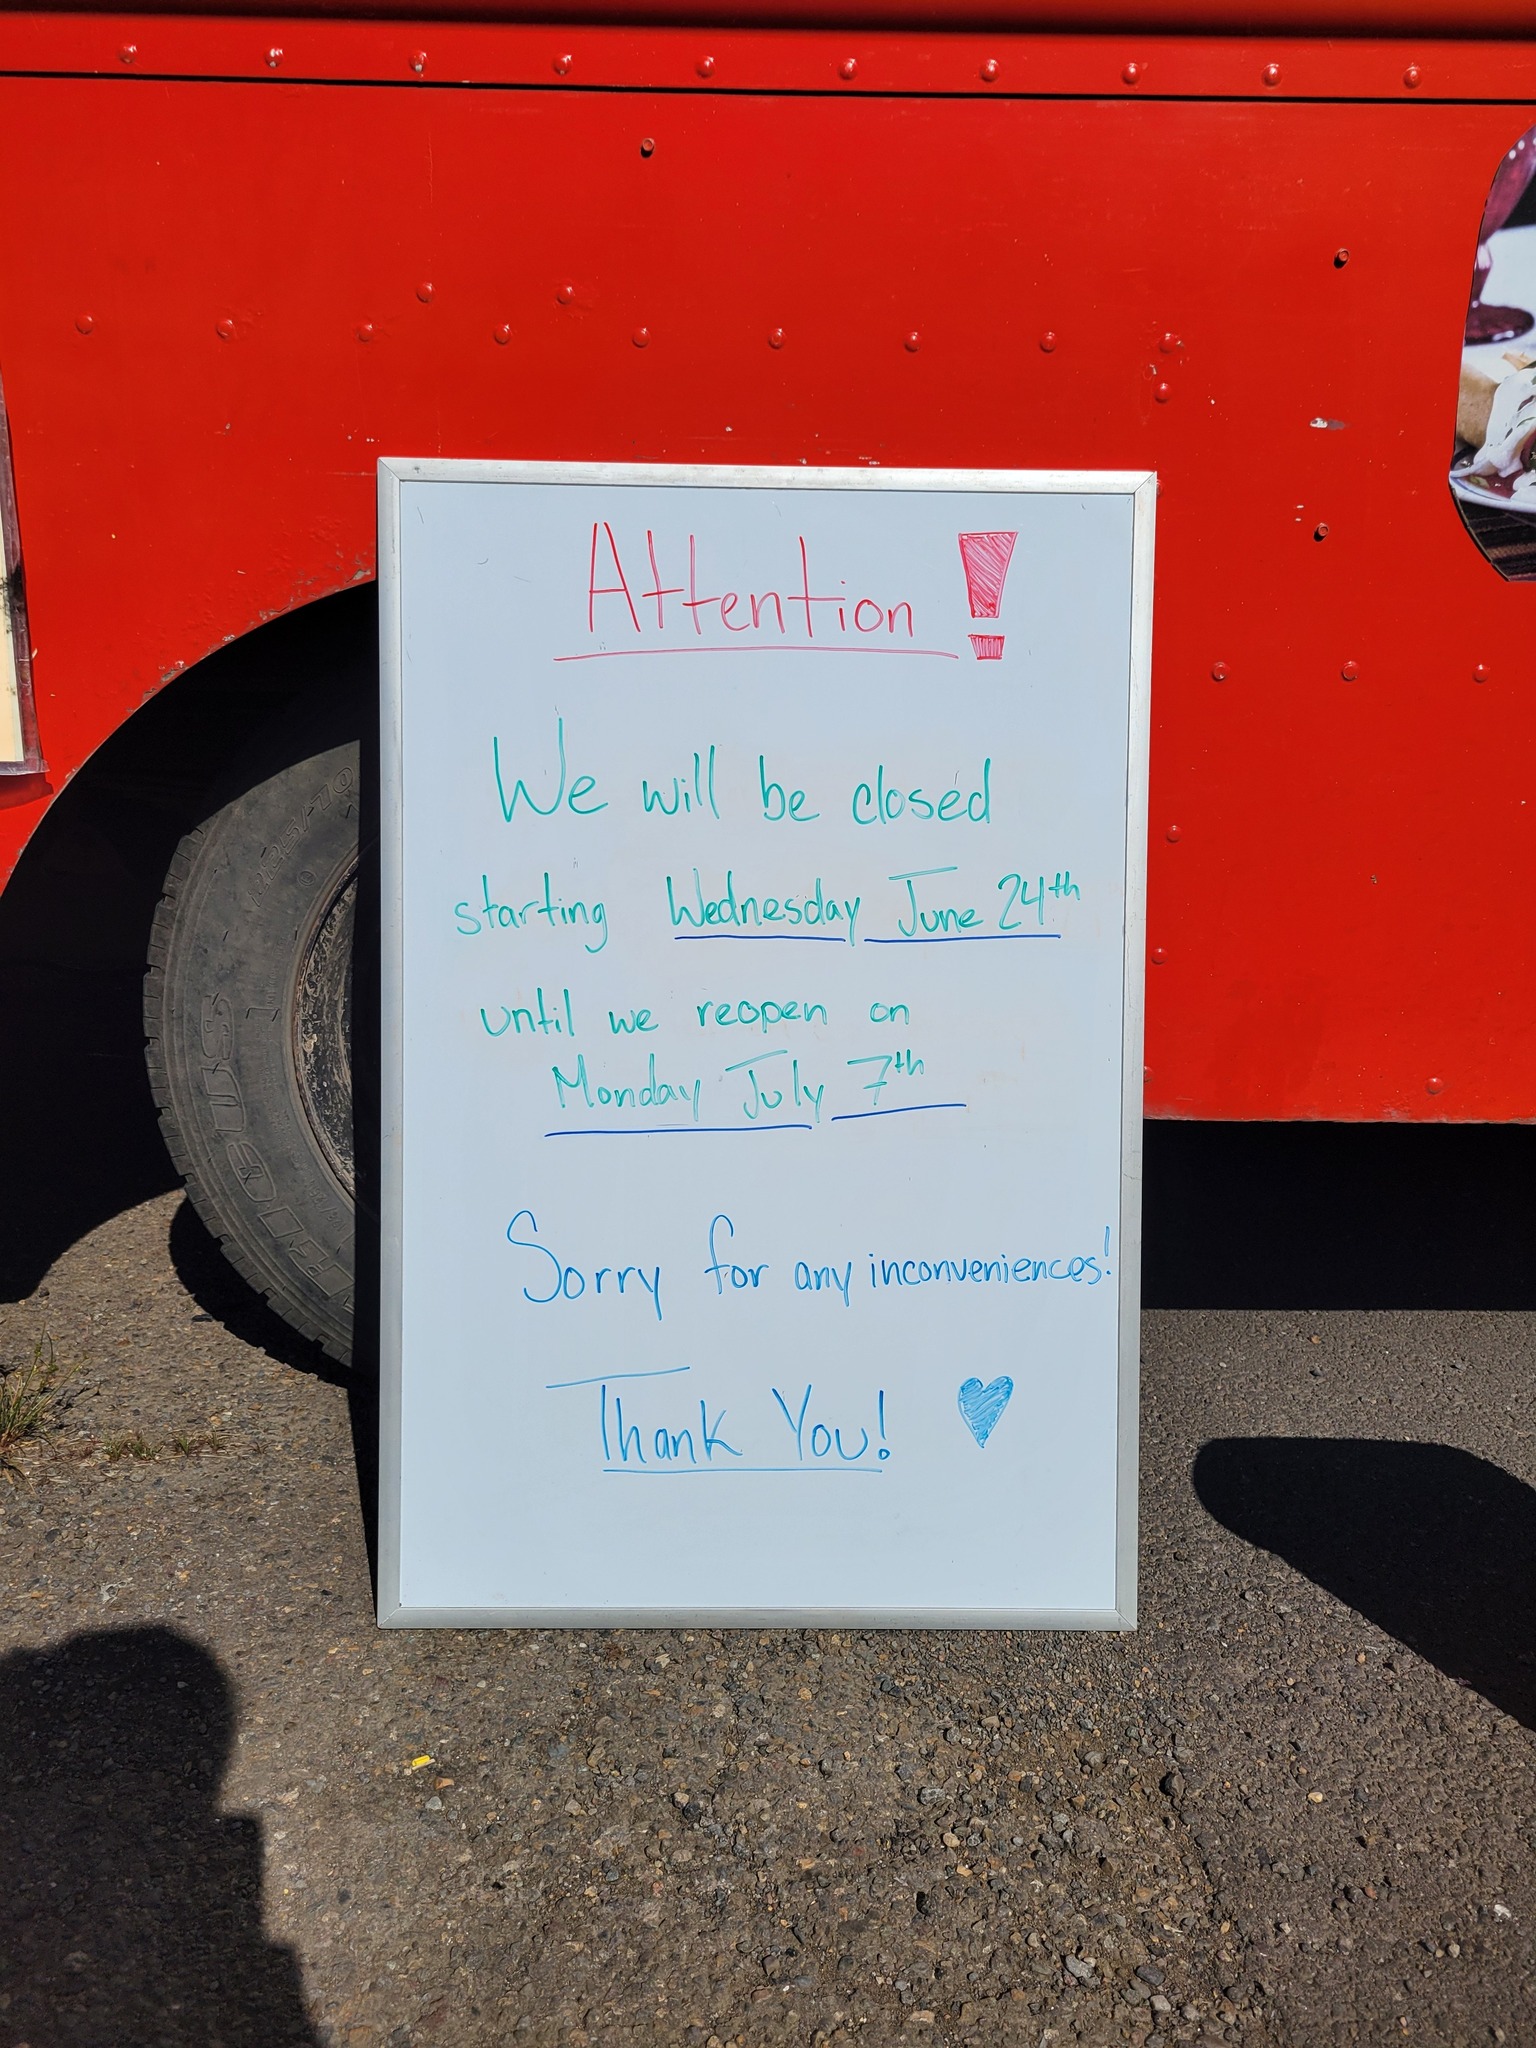 Attention!
We will be closed
starting Wednesday June 24th
until we reopen on
Monday July 7th
Sorry for any inconveniences!
Thank You!